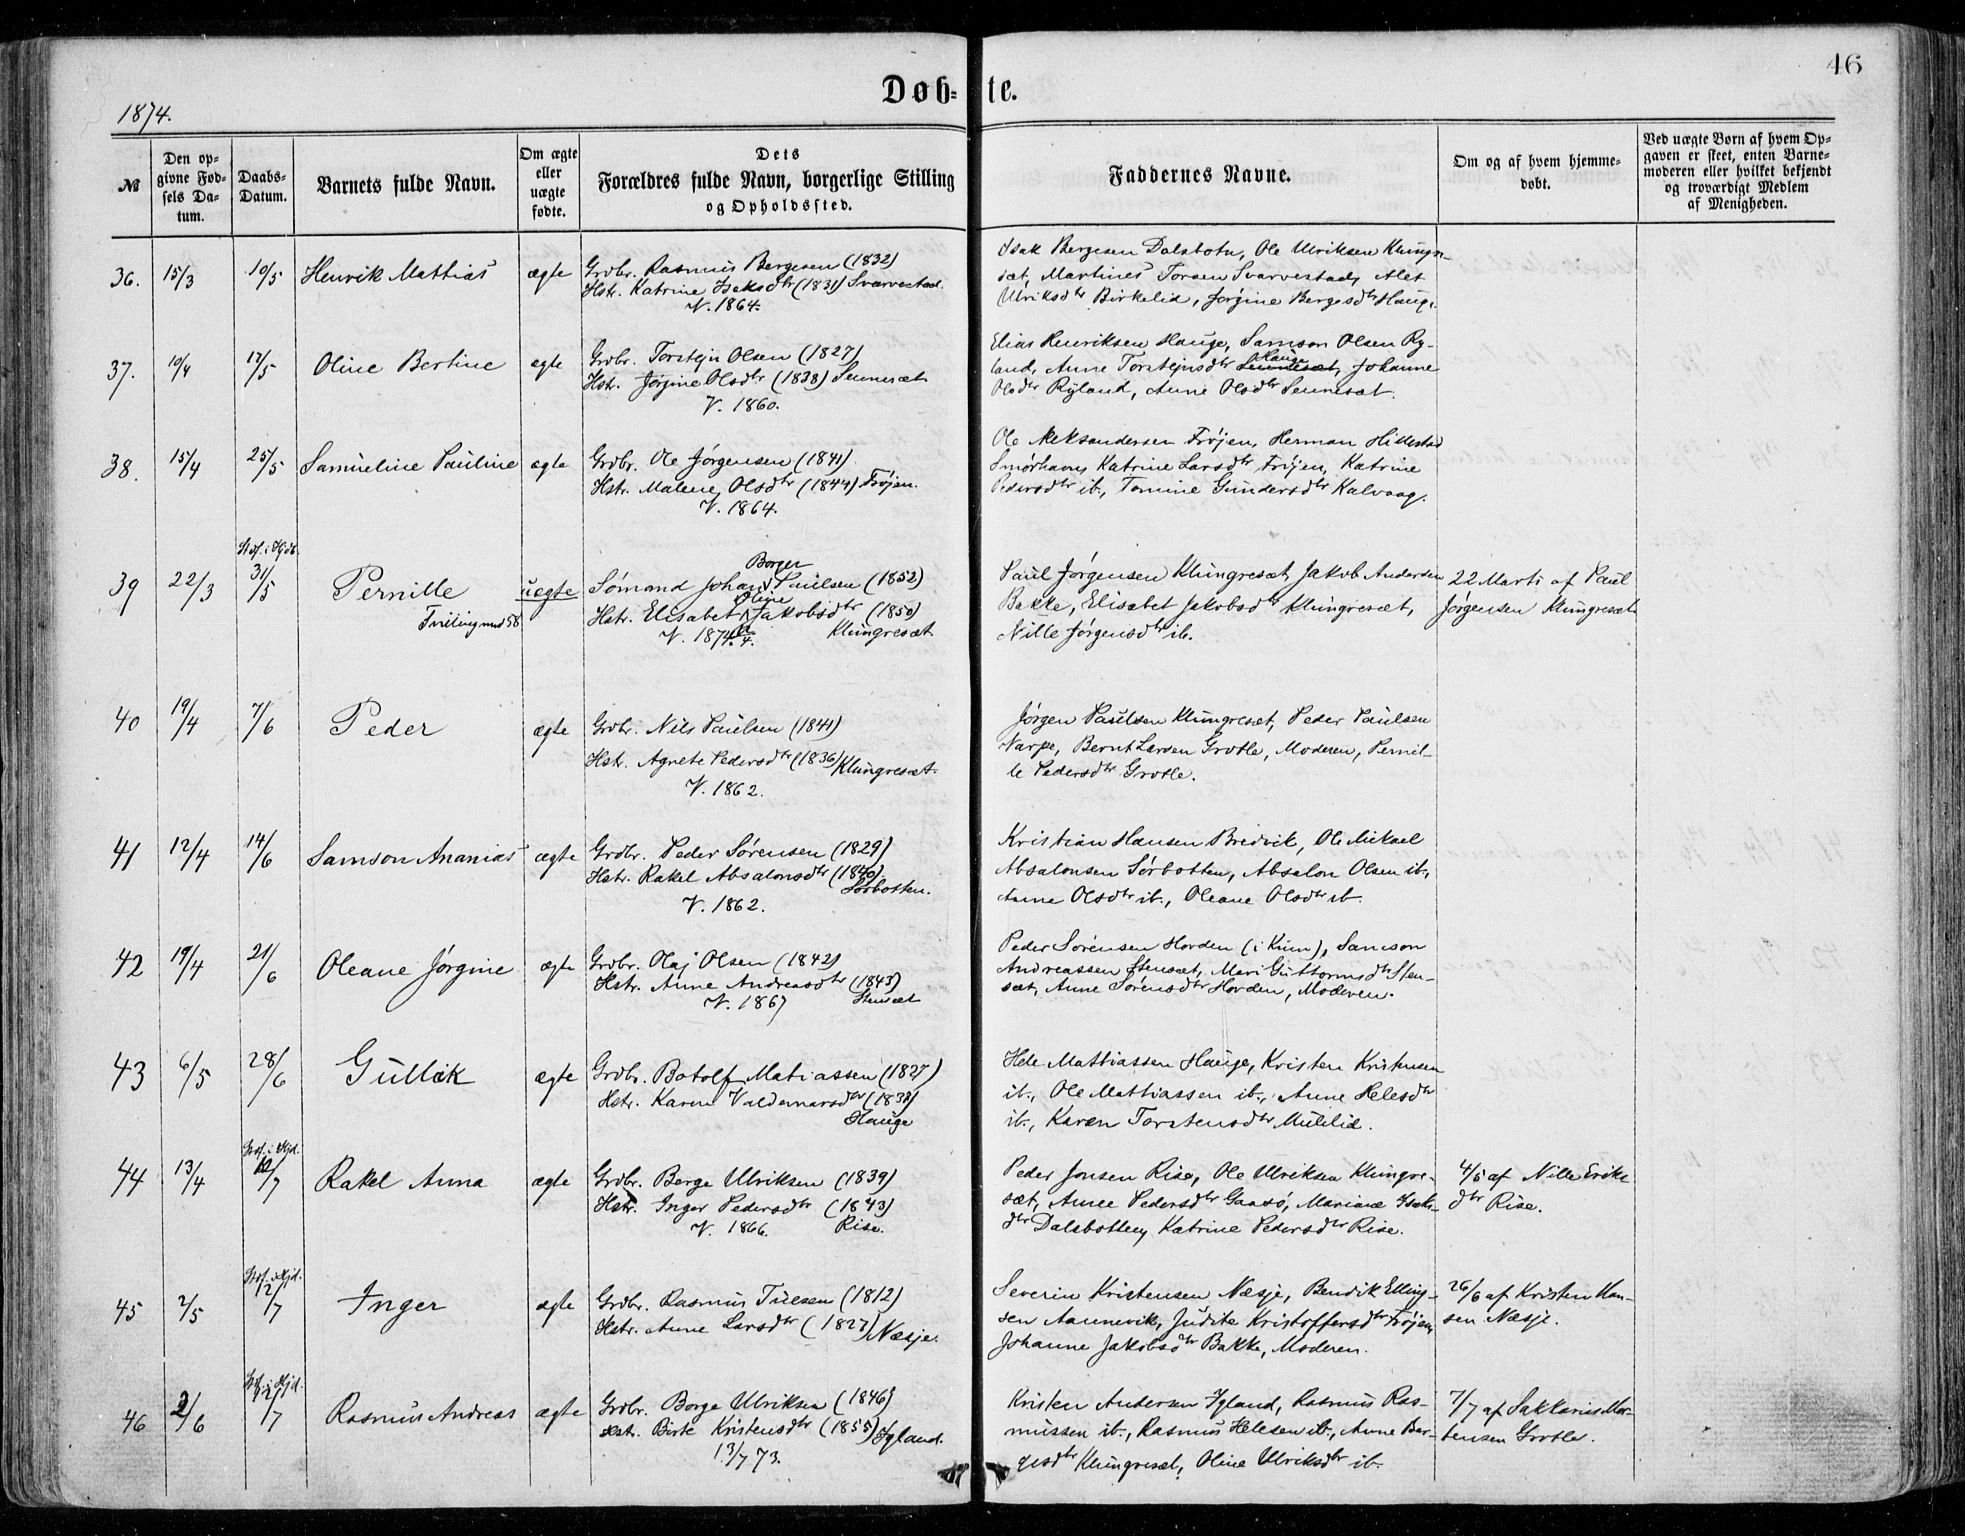 46
Døb-te.
1874.
№
Den op-
givne Fød-
sels Da-
tum.
Daabs-
Datum.
Barnets fulde Navn.
Om ægte
eller
uægte
fødte.
Dets
Forældres fulde Navn, borgerlige Stilling
og Opholdssted.
Faddernes Navne.
Om og af hvem hjemme-
døbt.
Ved uægte Børn af hvem Op-
gaven er skeet, enten Barne-
moderen eller hvilket bekjendt
og troværdigt Medlem
af Menigheden.
36. 15/3 10/5 Henrik Mattias ægte
Grdbr. Rasmus Bergesen (1832)
Hstr. Katrine Isaksdtr (1831) Svarvestad.
V. 1864.
Isak Bergesen Dalsbotn, Ole Ulriksen Klungre-
sæt, Martines Torsen Svarvestad, Alet
Ulriksdtr Birkelid, Jørgine Bergesdtr Hauge.
37. 10/4 17/5 Oline Bertine ægte
Grdbr. Torstejn Olsen (1827)
Hstr. Jørgine Olsdtr (1838) Sennesæt
V. 1860.
Elias Henriksen Hauge, Samson Olsen Ry-
land, Anne Torstejnsdtr Sennesæt Hauge, Johanne
Olsdtr Ryland, Anne Olsdtr Sennesæt.
38. 15/4 25/5 Samueline Pauline ægte
Grdbr. Ole Jørgensen (1841)
Hstr. Malene Olsdtr (1844) Frøjen.
V. 1864.
Ole Aleksandersen Frøjen, Herman Hillestad
Smørhavn, Katrine Larsdtr Frøjen, Katrine
Pedersdtr ib., Tomine Gundersdtr Kalvaag.
39 22/3 Stdf. i Hjd. 31/5 Pernille uægte
Tvilling med 58
Sømand Johan Borger Paulsen (1852)
Hstr. Elisabet Oline Jakobsdtr (1850)
V. 1874 Klungresæt
Paul Jørgensen Klungresæt, Jakob Andersen
Bakke, Elisabet Jakobsdtr Klungresæt,
Nille Jørgensdtr ib.
22 Marts af Paul
Jørgensen Klungresæt
40 19/4 7/6 Peder ægte
Grdbr. Nils Paulsen (1841)
Hstr. Agnete Pedersdtr (1836) Klungresæt.
V. 1862.
Jørgen Paulsen Klungresæt, Peder Paulsen
Varpe, Bernt Larsen Grotle, Moderen, Pernil-
le Pedersdtr Grotle.
41 12/4 14/6 Samson Ananias ægte
Grdbr. Peder Sørensen (1829)
Hstr. Rakel Absalonsdtr (1840)
Sørbotten.
V. 1862.
Kristian Hansen Bredvik, Ole Mickael
Absalonsen Sørbotten, Absalon Olsen ib.,
Anne Olsdtr ib., Oleane Olsdtr ib.
42 19/4 21/6 Oleane Jørgine ægte
Grdbr. Olaj Olsen (1842)
Hstr. Anne Andreasdtr (1843)
V. 1867 Stensæt
Peder Sørensen Horden (i Kinn), Samson
Andreassen Stensæt, Mari Guttormsdtr Sten-
sæt, Anne Sørensdtr Horden, Moderen.
43 6/5 28/6 Gullik ægte
Grdbr. Botolf Matiassen (1827)
Hstr. Karen Valdemarsdtr (1838)
Hauge
Hele Mattiassen Hauge, Kristen Kristensen
ib., Ole Mattiassen ib., Anne Helesdtr
ib., Karen Torstensdtr Mulelid.
44 13/4 Stdf. i Hjd. 12/7 Rakel Anna ægte
Grdbr. Berge Ulriksen (1839)
Hstr. Inger Pedersdtr (1843)
V. 1866. Rise.
Peder Jonsen Rise, Ole Ulriksen Klungre-
sæt, Anne Pedersdtr Gaasø, Mariane Isaks-
dtr Dalsbotten, Katrine Pedersdtr Rise.
4/5 af Nille Eriks
dtr Rise.
45 2/5 Stdf. i Hjd. 12/7 Inger ægte
Grdbr. Rasmus Tuesen (1812)
Hstr. Anne Larsdtr (1827) Næsje.
Severin Kristensen Næsje, Bendik Elling-
sen Aannevik, Judite Kristoffersdtr Frøjen,
Johanne Jakobsdtr Bakke, Moderen.
26/6 af Kristen Han-
sen Næsje.
46 2/6 Stdf. i Hjd. 12/7 Rasmus Andreas ægte
Grdbr. Borge Ulriksen (1846)
Hstr. Birte Kristensdtr (1855) Igland.
13/7 73.
Kristen Andersen Igland, Rasmus Ras-
mussen ib., Rasmus Helesen ib., Anne Ber-
gesdtr Klungresæt, Oline Ulriksdtr ib.
7/7 af Sakkarias Mor-
tensen Grotle.